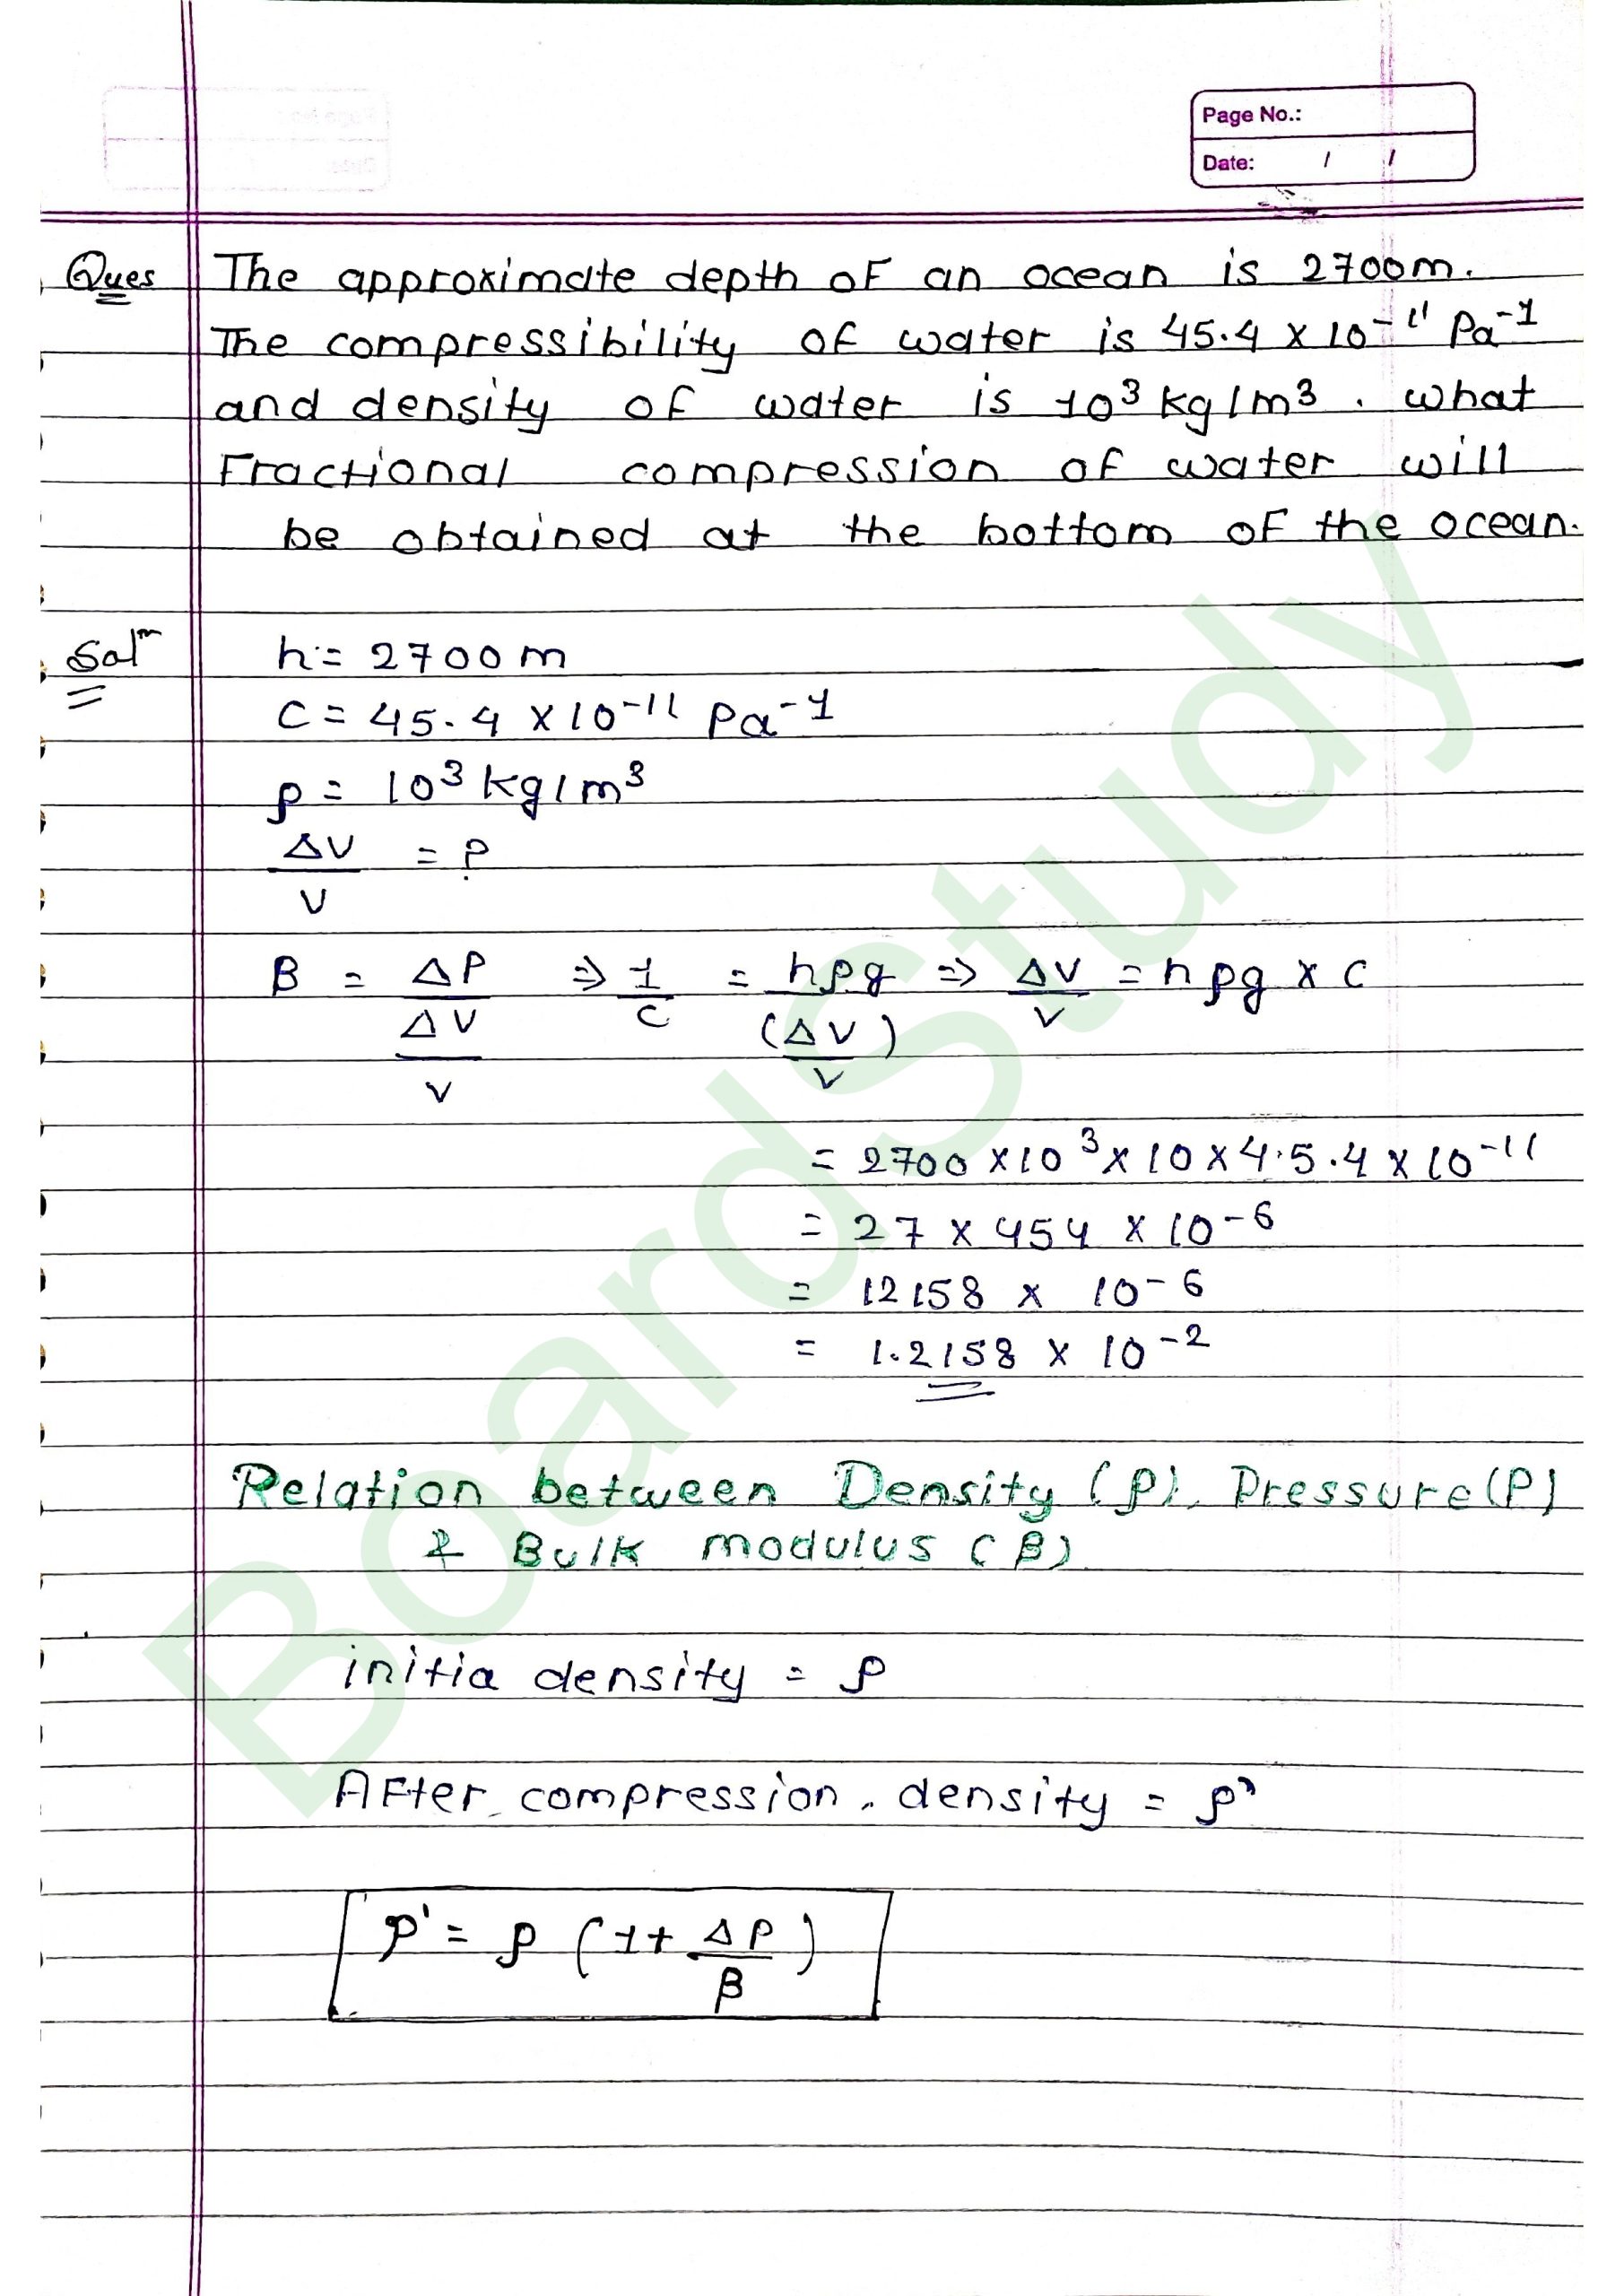 Page No.:
Date: / /
Ques The approximate depth of an ocean is 2700m.
The compressibility of water is 45.4 x 10-11 Pa-1
and density of water is 10³ kg/m³. what
Fractional compression of water will
be obtained at the bottom of the ocean.
Solⁿ h = 2700 m
C = 45.4 x 10-11 Pa-1
ρ = 10³ kg/m³
ΔV/V = ?
B = ΔP/(ΔV/V) ⇒ 1/C = hρg/(ΔV/V) ⇒ ΔV/V = hρg x C
= 2700 x 10³ x 10 x 45.4 x 10-11
= 27 x 454 x 10-6
= 12158 x 10-6
= 1.2158 x 10-2
Relation between Density (ρ), Pressure (P)
& Bulk modulus (B)
initia density = ρ
After compression, density = ρ'
ρ' = ρ (1 + ΔP/B)
BoardStudy